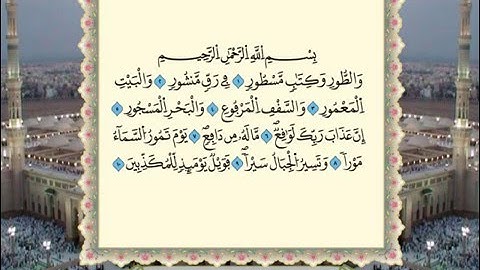 بِسْمِ اللَّهِ الرَّحْمَٰنِ الرَّحِيمِ
وَالطُّورِ وَكِتَابٍ مَّسْطُورٍ ۝٢ فِي رَقٍّ مَّنشُورٍ ۝٣ وَالْبَيْتِ
الْمَعْمُورِ ۝٤ وَالسَّقْفِ الْمَرْفُوعِ ۝٥ وَالْبَحْرِ الْمَسْجُورِ ۝٦
إِنَّ عَذَابَ رَبِّكَ لَوَاقِعٌ ۝٧ مَّا لَهُ مِن دَافِعٍ ۝٨ يَوْمَ تَمُورُ السَّمَاءُ
مَوْرًا ۝٩ وَتَسِيرُ الْجِبَالُ سَيْرًا ۝١٠ فَوَيْلٌ يَوْمَئِذٍ لِّلْمُكَذِّبِينَ